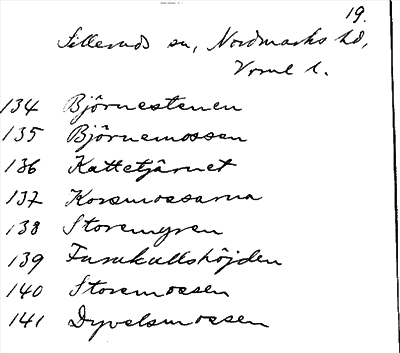 19.
Silleruds sn, Nordmarks hd,
Vrml l.
134 Björnestenen
135 Björnemossen
136 Kattetjärnet
137 Korsmossarna
138 Storemyren
139 Furukullshöjden
140 Storemossen
141 Dyvelsmossen